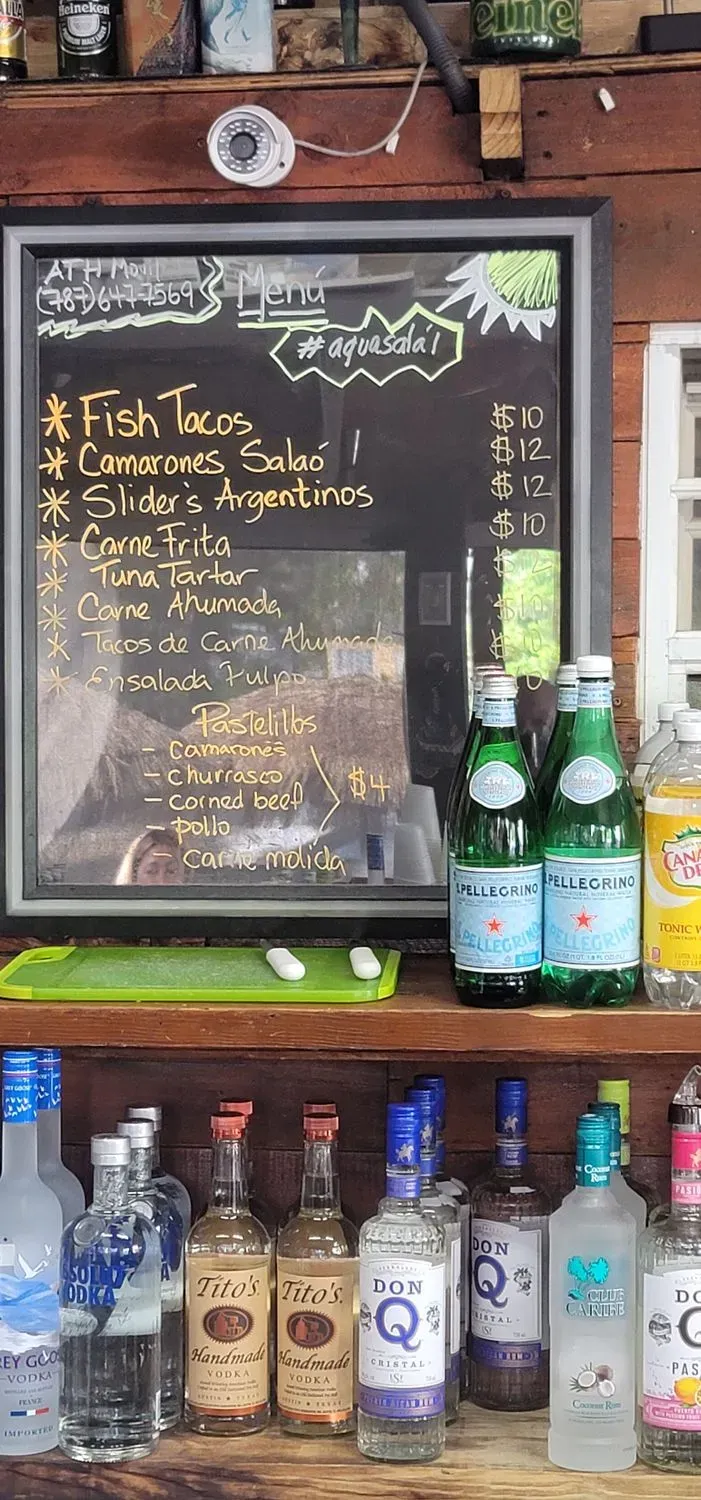 Heineken
eine
ATH Movil
(787)647-7569
Menú
#aquasala'l
* Fish Tacos $10
* Camarones Salaó $12
* Slider's Argentinos $12
* Carne Frita $10
* Tuna Tartar $
* Carne Ahumada $10
* Tacos de Carne Ahumada $
* Ensalada Pulpo
Pastelillos
- camarones
- churrasco
- corned beef
- pollo
- carne molida
$4
S.PELLEGRINO
S.PELLEGRINO
PELLEGRINO
PELLEGRINO
CANADA
DRY
TONIC W
GREY GOOSE
REY GOO
VODKA
FRANCE
IMPORTED
ABSOLUT
VODKA
Tito's
Handmade
VODKA
AUSTIN ★ TEXAS
Tito's
Handmade
VODKA
AUSTIN ★ TEXAS
DON
Q
CRISTAL
DON
Q
CRISTAL
Coconut
Rum
CLUB
CARIBE
Coconut Rum
PASIO
DO
Q
PAS